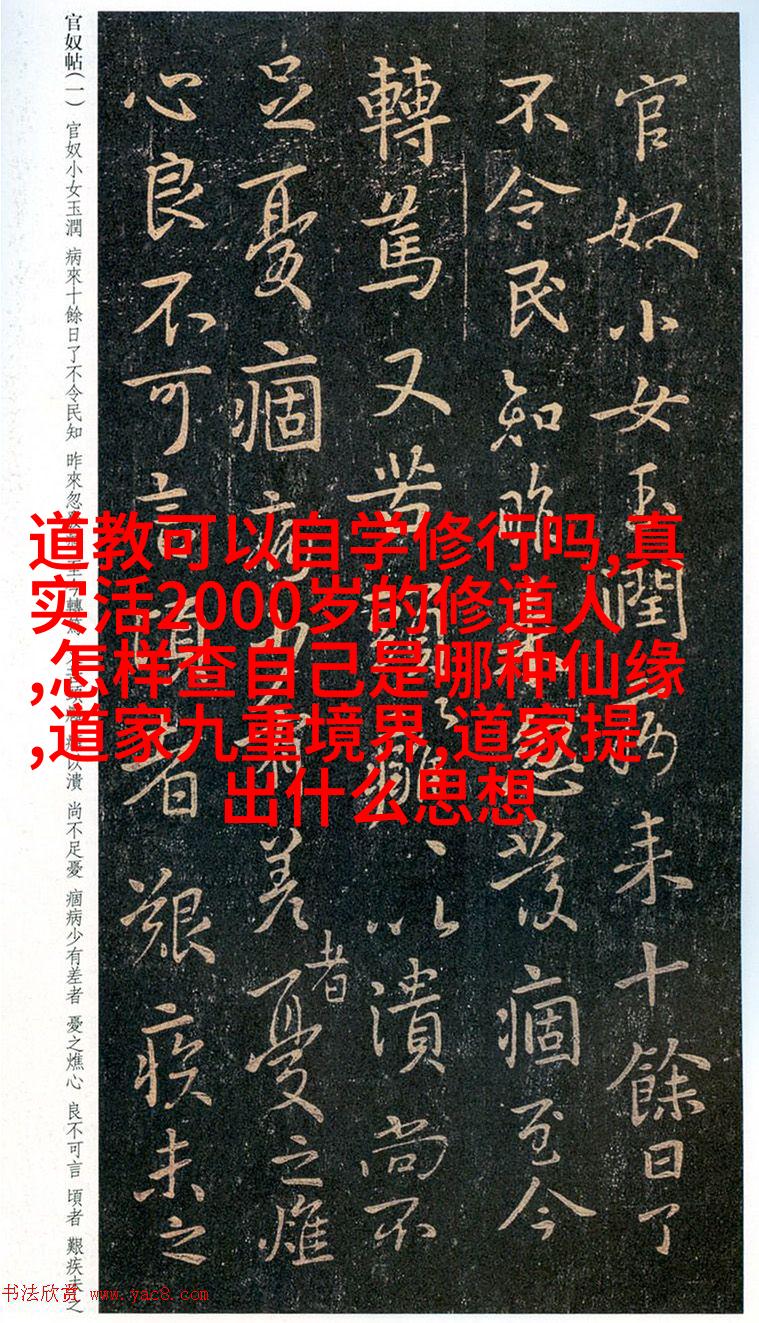 官奴小女玉潤病来十餘日了
不令民知昨来忽發痼至今
轉篤又苦頭癰〻以潰尚不
足憂痼病少有差者憂之燋
心良不可言頃者艱疾未之
官奴帖(一) 官奴小女玉潤 病來十餘日了不令民知 昨來忽發痼至今轉篤 又苦頭癰 癰以潰 尚不足憂 痼病少有差者 憂之燋心 良不可言 頃者 艱疾未之
道教可以自学修行吗,真
实活2000岁的修道人
,怎样查自己是哪种仙缘
,道家九重境界,道家提
出什么思想
书法欣赏 www.yac8.com